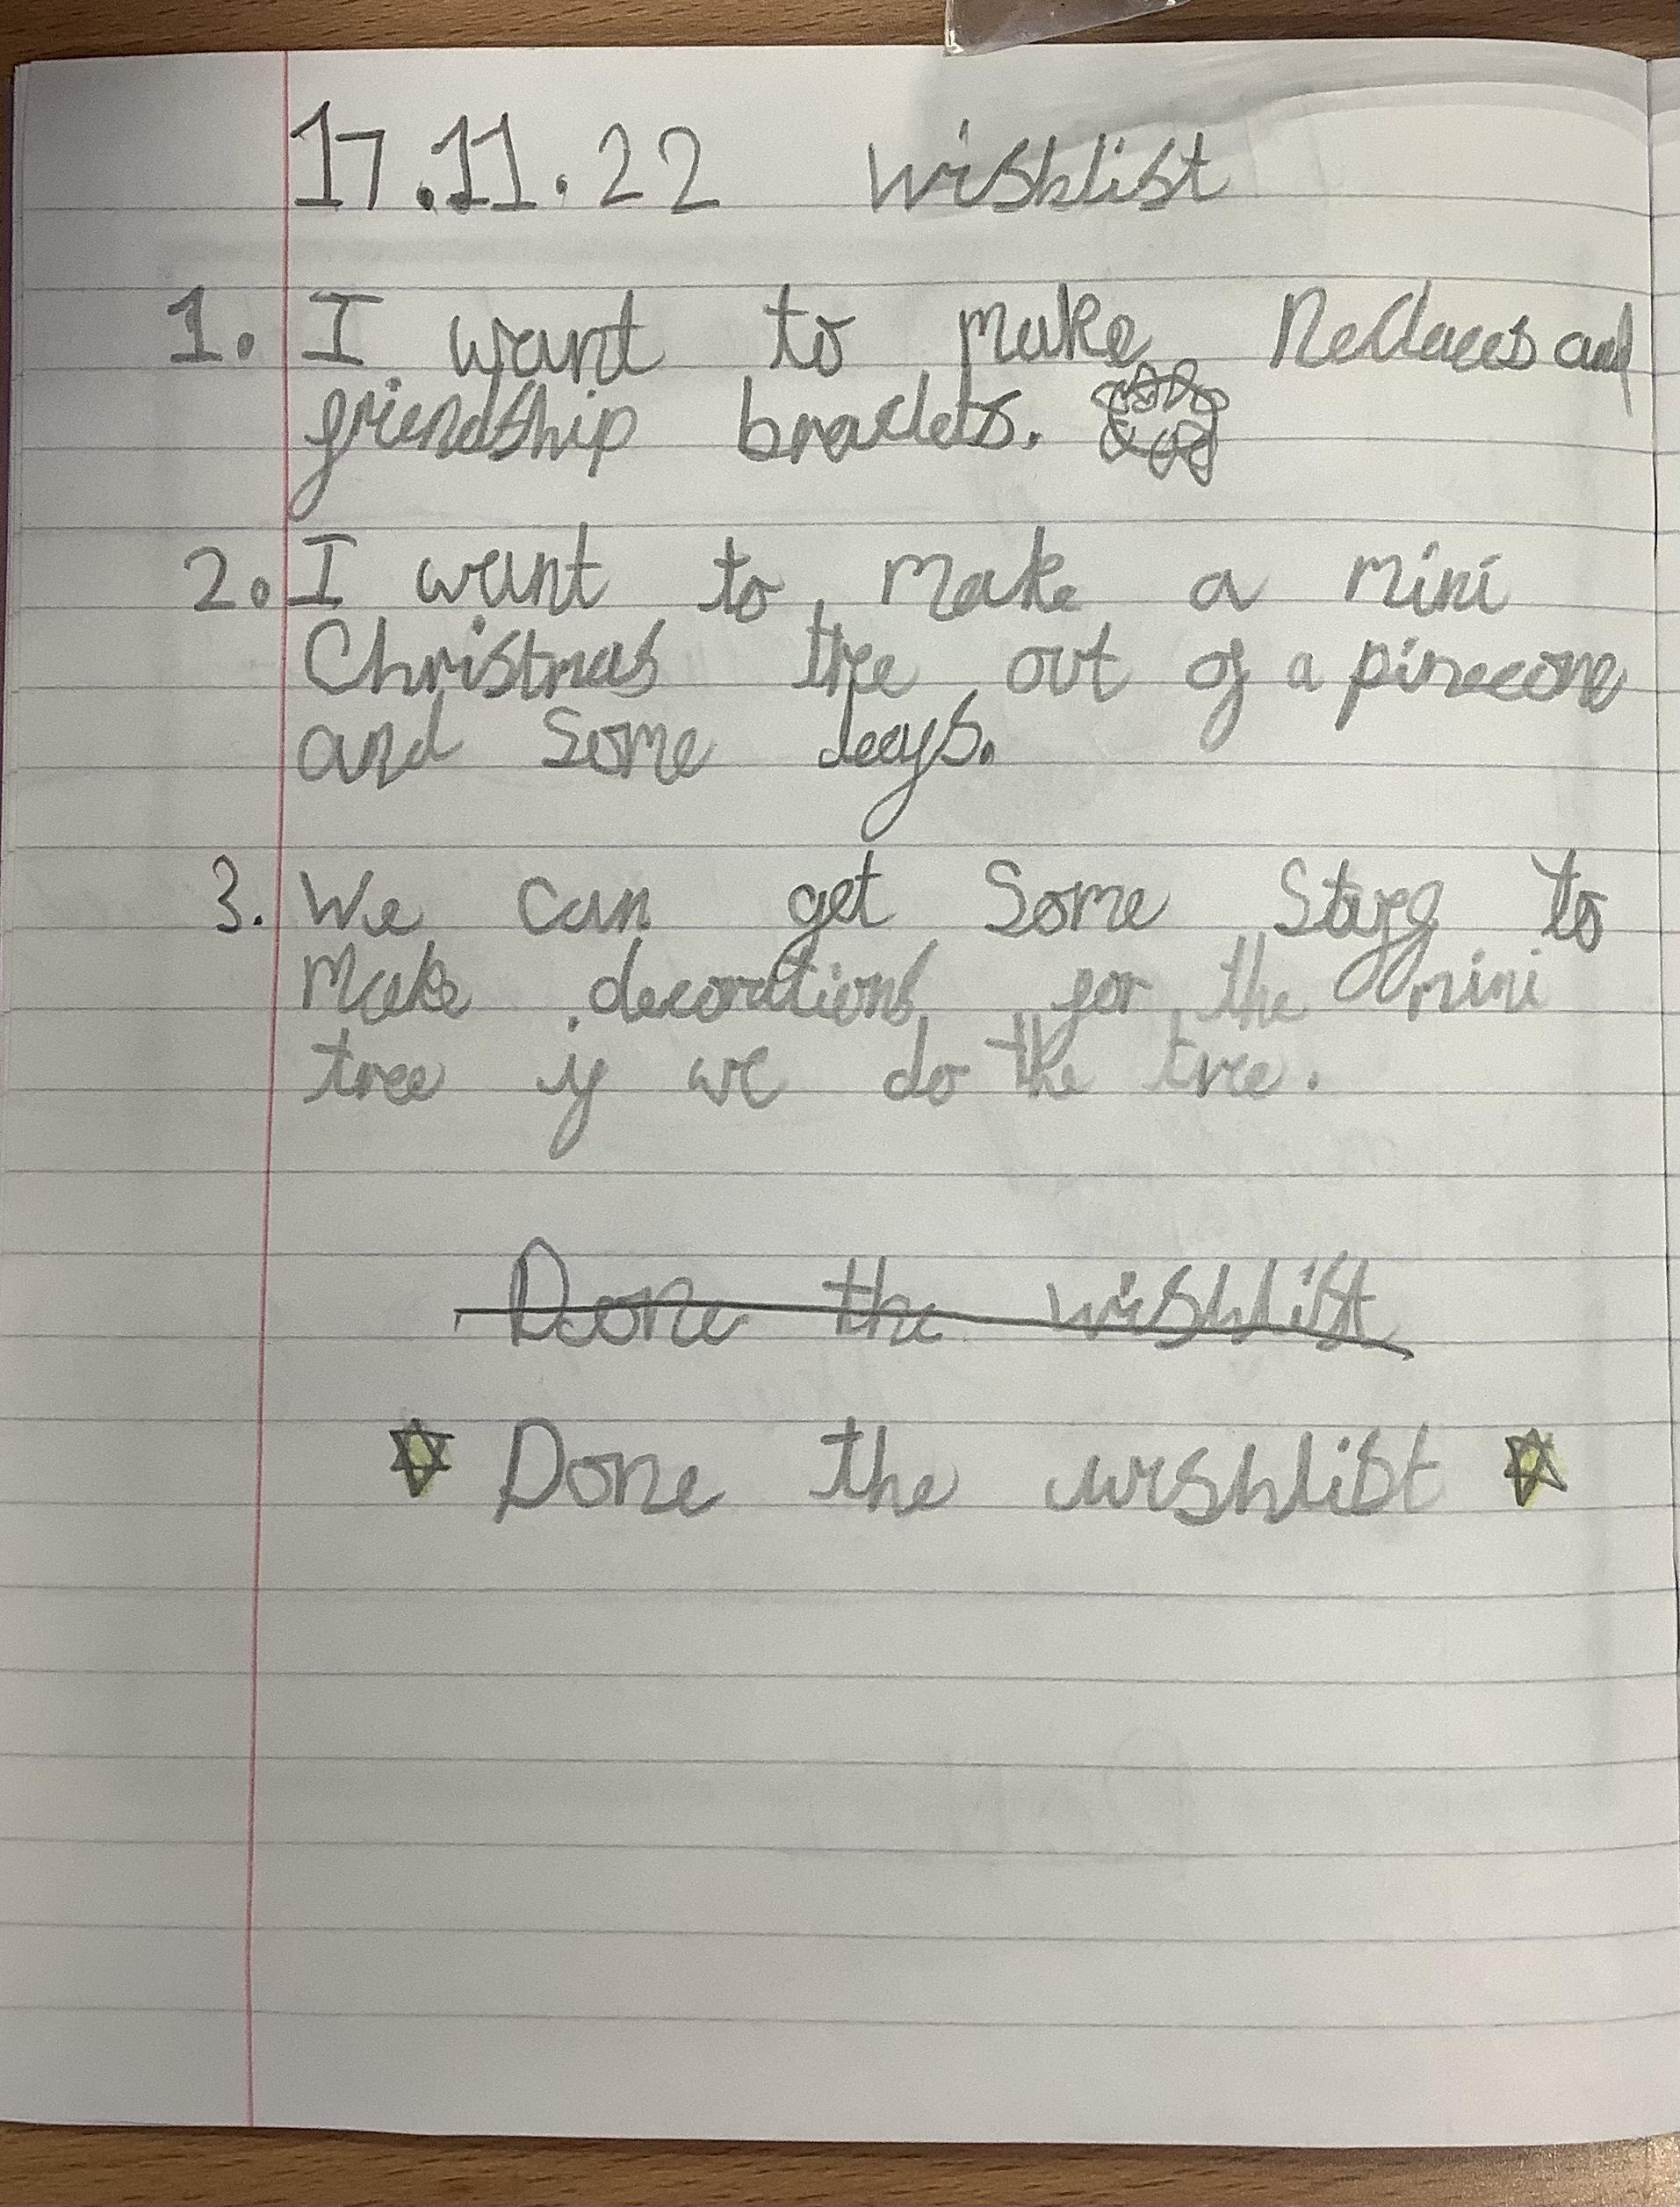 17.11.22 wishlist
1. I want to make Neclaces and
friendship braclets.
2. I want to make a mini
Christmas tree out of a pinecone
and some leafs.
3. We can get some stuff to
make decorations for the mini
tree if we do the tree.
Done the wishlist
Done the wishlist